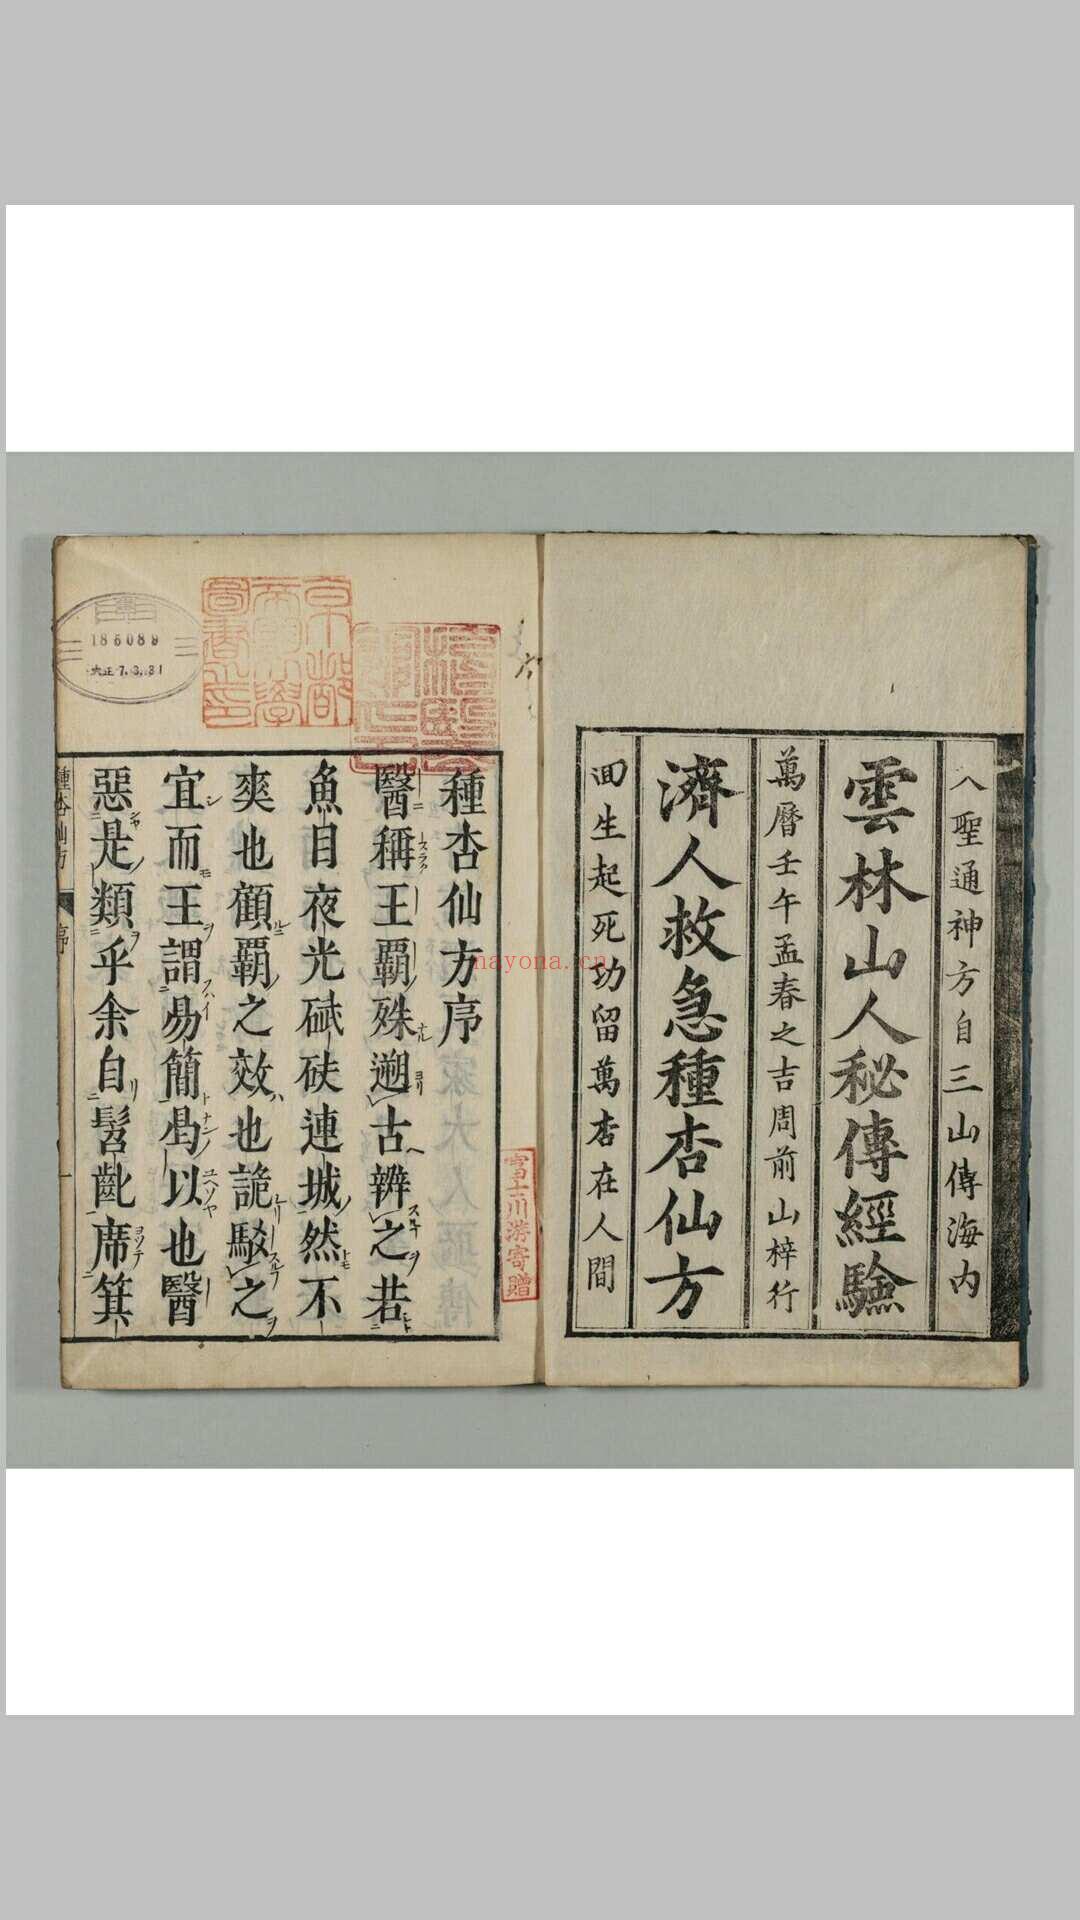 入聖通神方自三山傳海内
雲林山人秘傳經驗
萬曆壬午孟春之吉周前山梓行
濟人救急種杏仙方
囬生起死功留萬杏在人間
種杏仙方序
醫稱王覇殊遡古辨之若
魚目夜光碔砆連城然不
爽也顧覇之效也詭駁之
宜而王謂易簡曷以也醫
惡是類乎余自髫齔席箕
種杏仙方 序 一
富士川游寄贈
京都帝國大學圖書之印
186089
大正7.3.31
nayona.cn